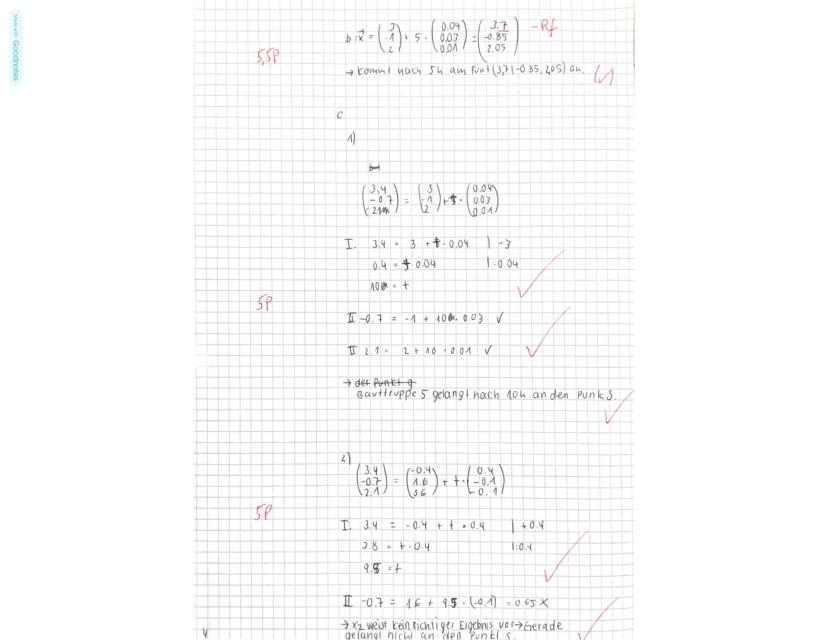 Made with Goodnotes
b: x⃗ = (3 -1 2) + 5 · (0.04 0.03 0.01) = (3.7 -0.85 2.05) -Rf
5,5P
→ kommt nach 5h am Punt (3,7|-0.85, 2,05) an. (✓)
c
1)
(3,4 -0.7 2.1) = (3 -1 2) + t · (0.04 0.03 0.01)
I. 3.4 = 3 + t · 0.04 | -3
0.4 = t · 0.04 | : 0.04
10 = t ✓
5P
II -0.7 = -1 + 10 · 0.03 ✓
II 2.1 = 2 + 10 · 0.01 ✓ ✓
→ der Punkt g
Bauttruppe 5 gelangt nach 10h an den Punk S. ✓
2)
(3,4 -0.7 2.1) = (-0.4 1.6 3.6) + t · (0.4 -0.1 -0.1)
5P
I. 3.4 = -0.4 + t · 0.4 | +0.4
3.8 = t · 0.4 | : 0.4
9.5 = t ✓
II -0.7 = 1.6 + 9.5 · (-0.1) = 0.65 x
→ x2 weist kein richtiger Ergebnis vor → Gerade
gelangt nicht an den Punkt S. ✓